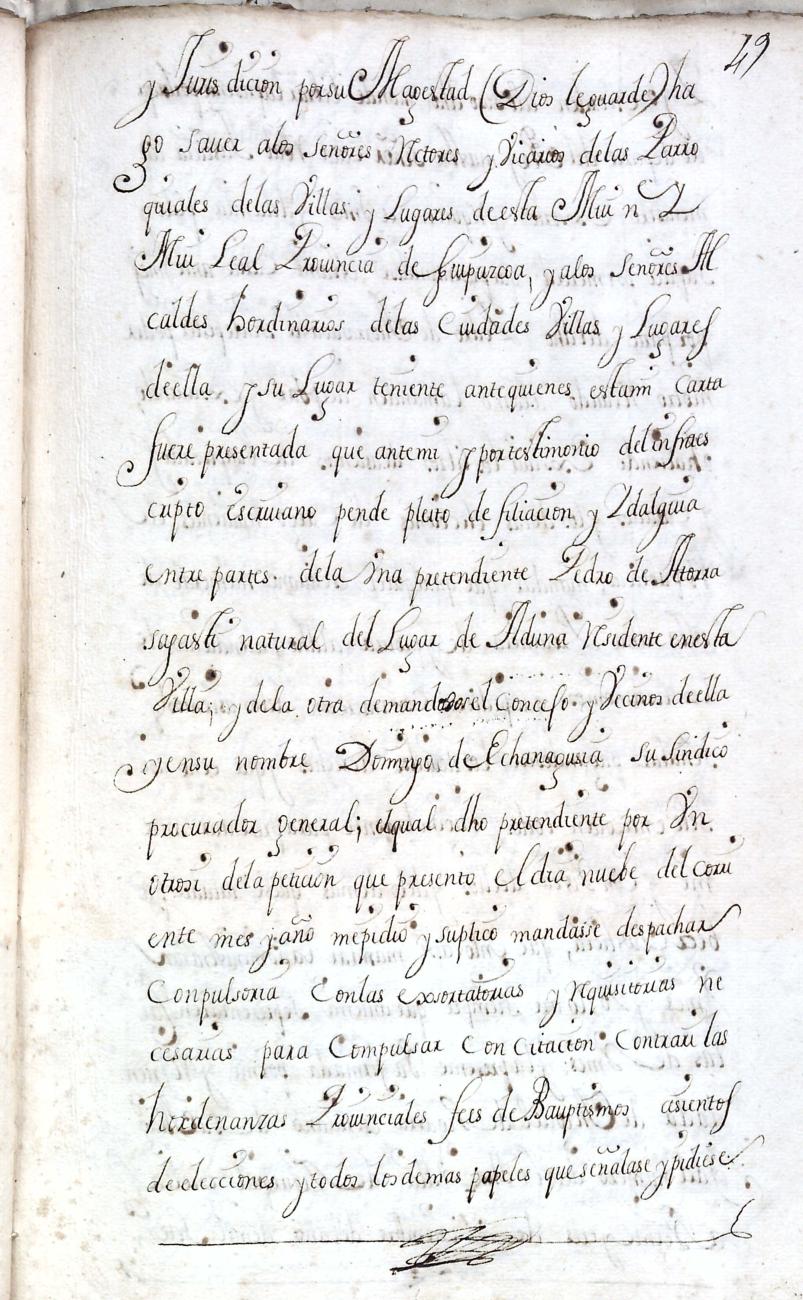 49
y Jurisdicion por su Magestad (Dios le guarde) ha
go sauer alos señores Retores y Vicarios delas Parro
quiales delas Villas y Lugares de esta Mui n Y
Mui Leal Prouincia de Guipuzcoa, y alos señores Al
caldes hordinarios delas Ciudades Villas y Lugares
de ella y su Lugar teniente ante quienes esta mi Carta
fuere presentada que ante mi y por testimonio del infraes
cripto escriuano pende pleito de filiacion y Ydalguia
entre partes dela Vna pretendiente Pedro de Atorra
sagasti natural del Lugar de Alduna Residente en esta
Villa; y dela otra demandador el Concejo y Vecinos de ella
y en su nombre Domingo de Echanagusia su sindico
procurador general; el qual dho pretendiente por Vn
otrosi dela peticion que presento el dia nuebe del corri
ente mes y año me pidio y suplico mandasse despachar
Conpulsoria Con las exsortatorias y Requisitorias ne
cesarias para Compulsar Con Citacion Contrari las
hordenanzas Prouinciales fees de Bauptismos asientos
de elecciones y todos los demas papeles que señalase y pidiese